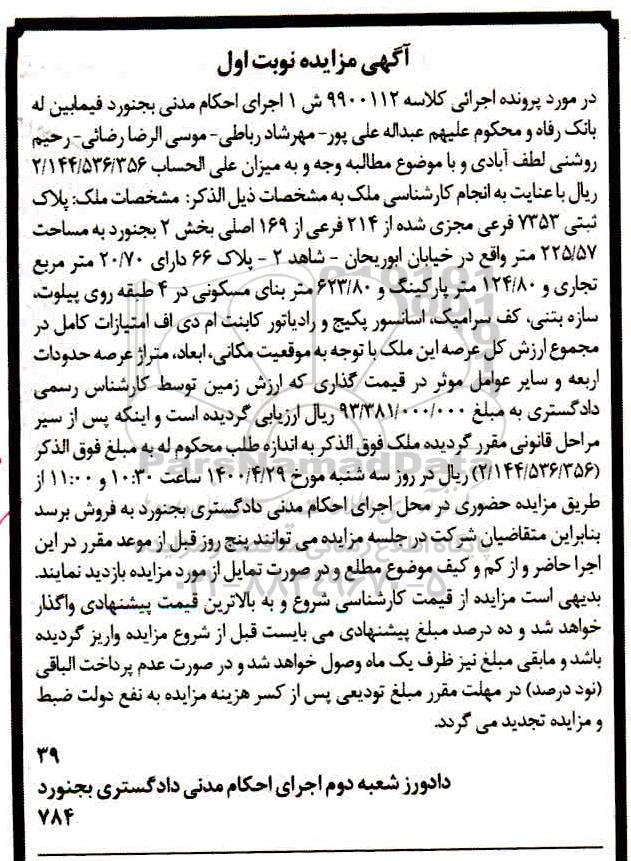 آگهی مزایده نوبت اول
در مورد پرونده اجرائی کلاسه ۹۹۰۰۱۱۲ ش ۱ اجرای احکام مدنی بجنورد فیمابین له
بانک رفاه و محکوم علیهم عبداله علی پور- مهرشاد رباطی- موسی الرضا رضائی- رحیم
روشنی لطف آبادی و با موضوع مطالبه وجه و به میزان علی الحساب ۲/۱۴۴/۵۳۶/۳۵۶
ریال با عنایت به انجام کارشناسی ملک به مشخصات ذیل الذکر: مشخصات ملک: پلاک
ثبتی ۷۳۵۳ فرعی مجزی شده از ۲۱۴ فرعی از ۱۶۹ اصلی بخش ۲ بجنورد به مساحت
۲۲۵/۵۷ متر واقع در خیابان ابوریحان - شاهد ۲ - پلاک ۶۶ دارای ۲۰/۷۰ متر مربع
تجاری و ۱۲۴/۸۰ متر پارکینگ و ۶۲۳/۸۰ متر بنای مسکونی در ۴ طبقه روی پیلوت،
سازه بتنی، کف سرامیک، آسانسور پکیج و رادیاتور کابنت ام دی اف امتیازات کامل در
مجموع ارزش کل عرصه این ملک با توجه به موقعیت مکانی، ابعاد، متراژ عرصه حدودات
اربعه و سایر عوامل موثر در قیمت گذاری که ارزش زمین توسط کارشناس رسمی
دادگستری به مبلغ ۹۳/۳۸۱/۰۰۰/۰۰۰ ریال ارزیابی گردیده است و اینکه پس از سیر
مراحل قانونی مقرر گردیده ملک فوق الذکر به اندازه طلب محکوم له به مبلغ فوق الذکر
(۲/۱۴۴/۵۳۶/۳۵۶) ریال در روز سه شنبه مورخ ۱۴۰۰/۴/۲۹ ساعت ۱۰:۳۰ و ۱۱:۰۰ از
طریق مزایده حضوری در محل اجرای احکام مدنی دادگستری بجنورد به فروش برسد
بنابراین متقاضیان شرکت در جلسه مزایده می توانند پنج روز قبل از موعد مقرر در این
اجرا حاضر و از کم و کیف موضوع مطلع و در صورت تمایل از مورد مزایده بازدید نمایند.
بدیهی است مزایده از قیمت کارشناسی شروع و به بالاترین قیمت پیشنهادی واگذار
خواهد شد و ده درصد مبلغ پیشنهادی می بایست قبل از شروع مزایده واریز گردیده
باشد و مابقی مبلغ نیز ظرف یک ماه وصول خواهد شد و در صورت عدم پرداخت الباقی
(نود درصد) در مهلت مقرر مبلغ تودیعی پس از کسر هزینه مزایده به نفع دولت ضبط
و مزایده تجدید می گردد.
۳۹
دادورز شعبه دوم اجرای احکام مدنی دادگستری بجنورد
۷۸۴